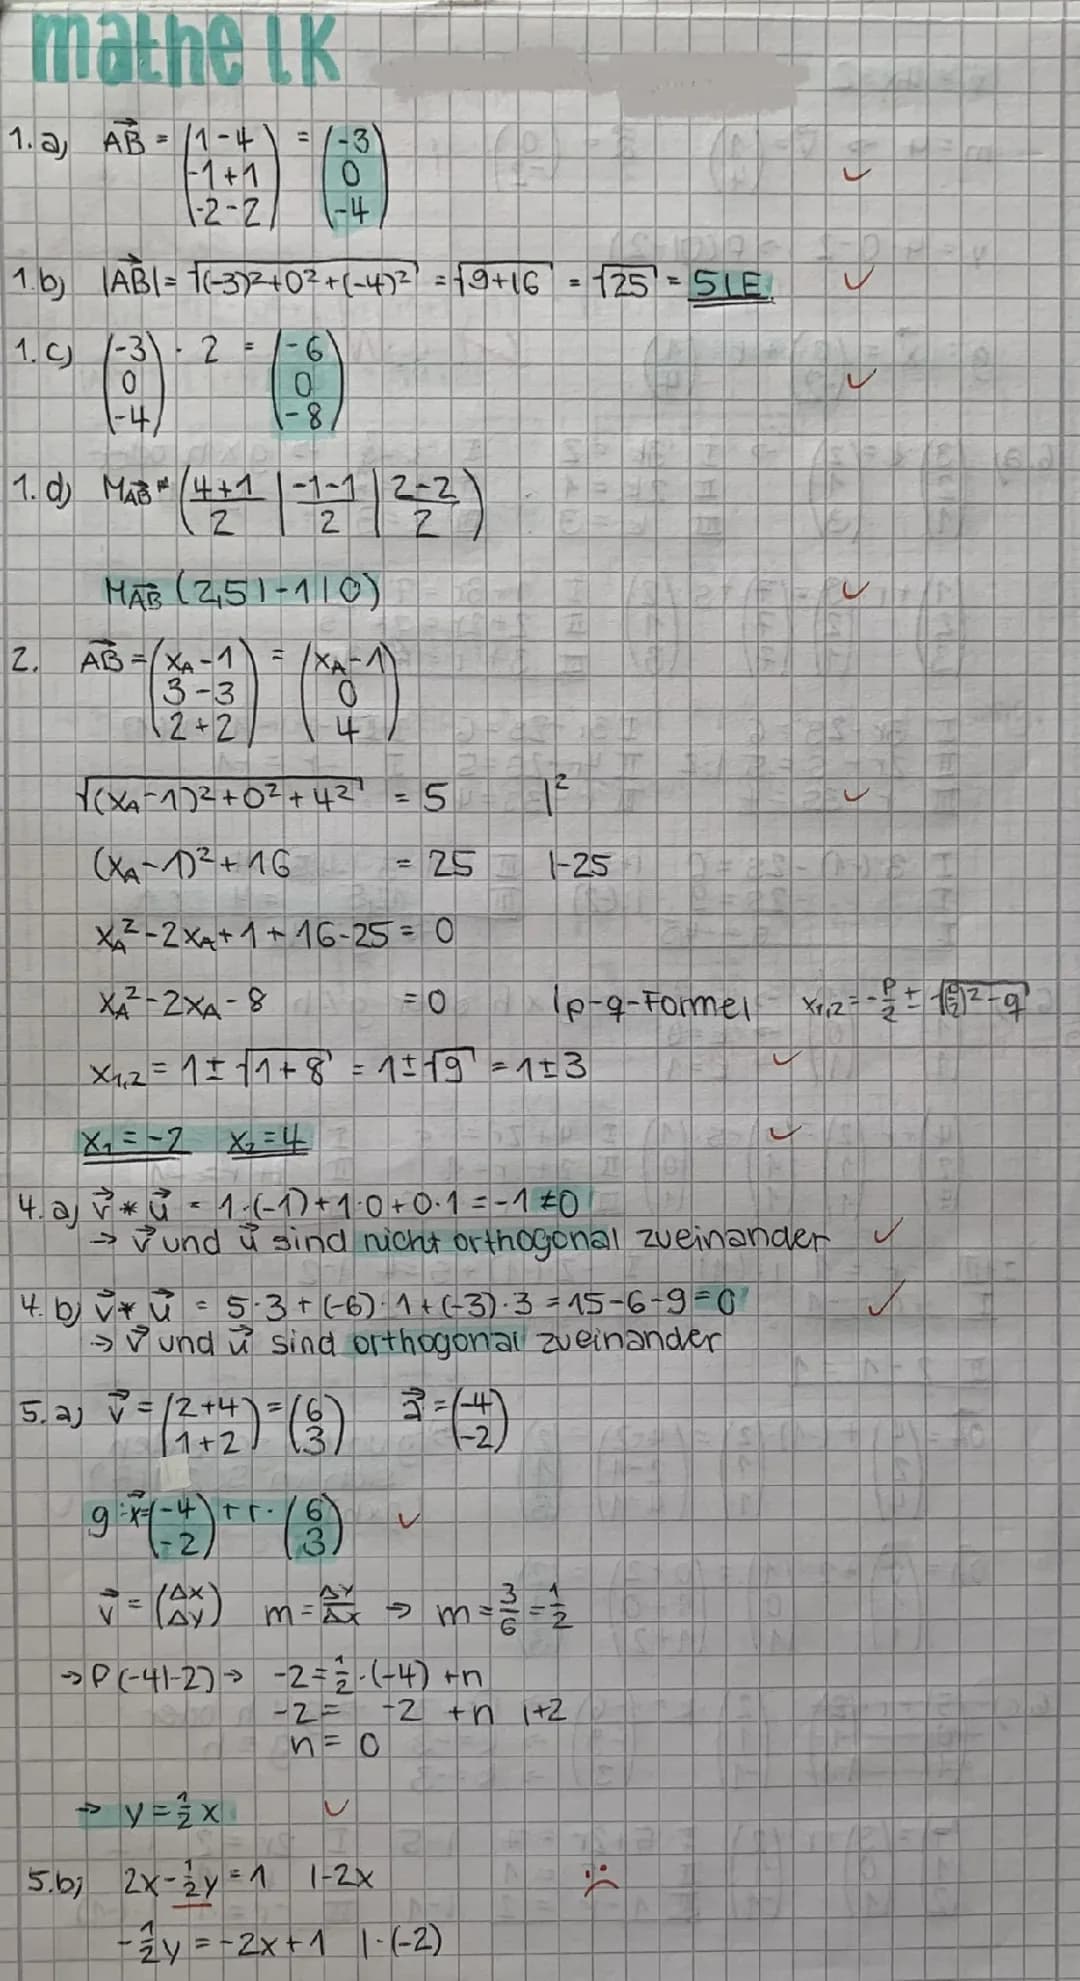 mathe LK
1. a) AB⃗ = (1-4 / -1+1 / -2-2) = (-3 / 0 / -4) ✓
1. b) |AB⃗| = √((-3)²+0²+(-4)²) = √(9+16) = √25 = 5LE ✓
1. c) (-3 / 0 / -4) · 2 = (-6 / 0 / -8) ✓
1. d) M_AB⃗ = (4+1/2 | -1-1/2 | 2-2/2)
M_AB⃗ (2,5|-1|0) ✓
2. AB⃗ = (x_A-1 / 3-3 / 2+2) = (x_A-1 / 0 / 4)
√((x_A-1)²+0²+4²) = 5 |² ✓
(x_A-1)²+16 = 25 |-25
x_A²-2x_A+1+16-25 = 0
x_A²-2x_A-8 = 0 |p-q-Formel x₁,₂ = -p/2 ± √((p/2)²-q)
x₁,₂ = 1±√(1+8) = 1±√9 = 1±3 ✓
x₁ = -2 x₂ = 4 ✓
4. a) v⃗ * u⃗ = 1·(-1)+1·0+0·1 = -1 ≠ 0
→ v⃗ und u⃗ sind nicht orthogonal zueinander ✓
4. b) v⃗ * u⃗ = 5·3+(-6)·1+(-3)·3 = 15-6-9 = 0 ✓
→ v⃗ und u⃗ sind orthogonal zueinander
5. a) v⃗ = (2+4 / 1+2) = (6 / 3) a⃗ = (-4 / -2)
g: x⃗ = (-4 / -2) + r · (6 / 3) ✓
v⃗ = (Δx / Δy) m = Δy/Δx → m = 3/6 = 1/2
→ P(-4|-2) → -2 = 1/2 · (-4) + n
-2 = -2 + n |+2
n = 0
→ y = 1/2 x ✓
5. b) 2x - 1/2 y = 1 |-2x
-1/2 y = -2x+1 |·(-2)